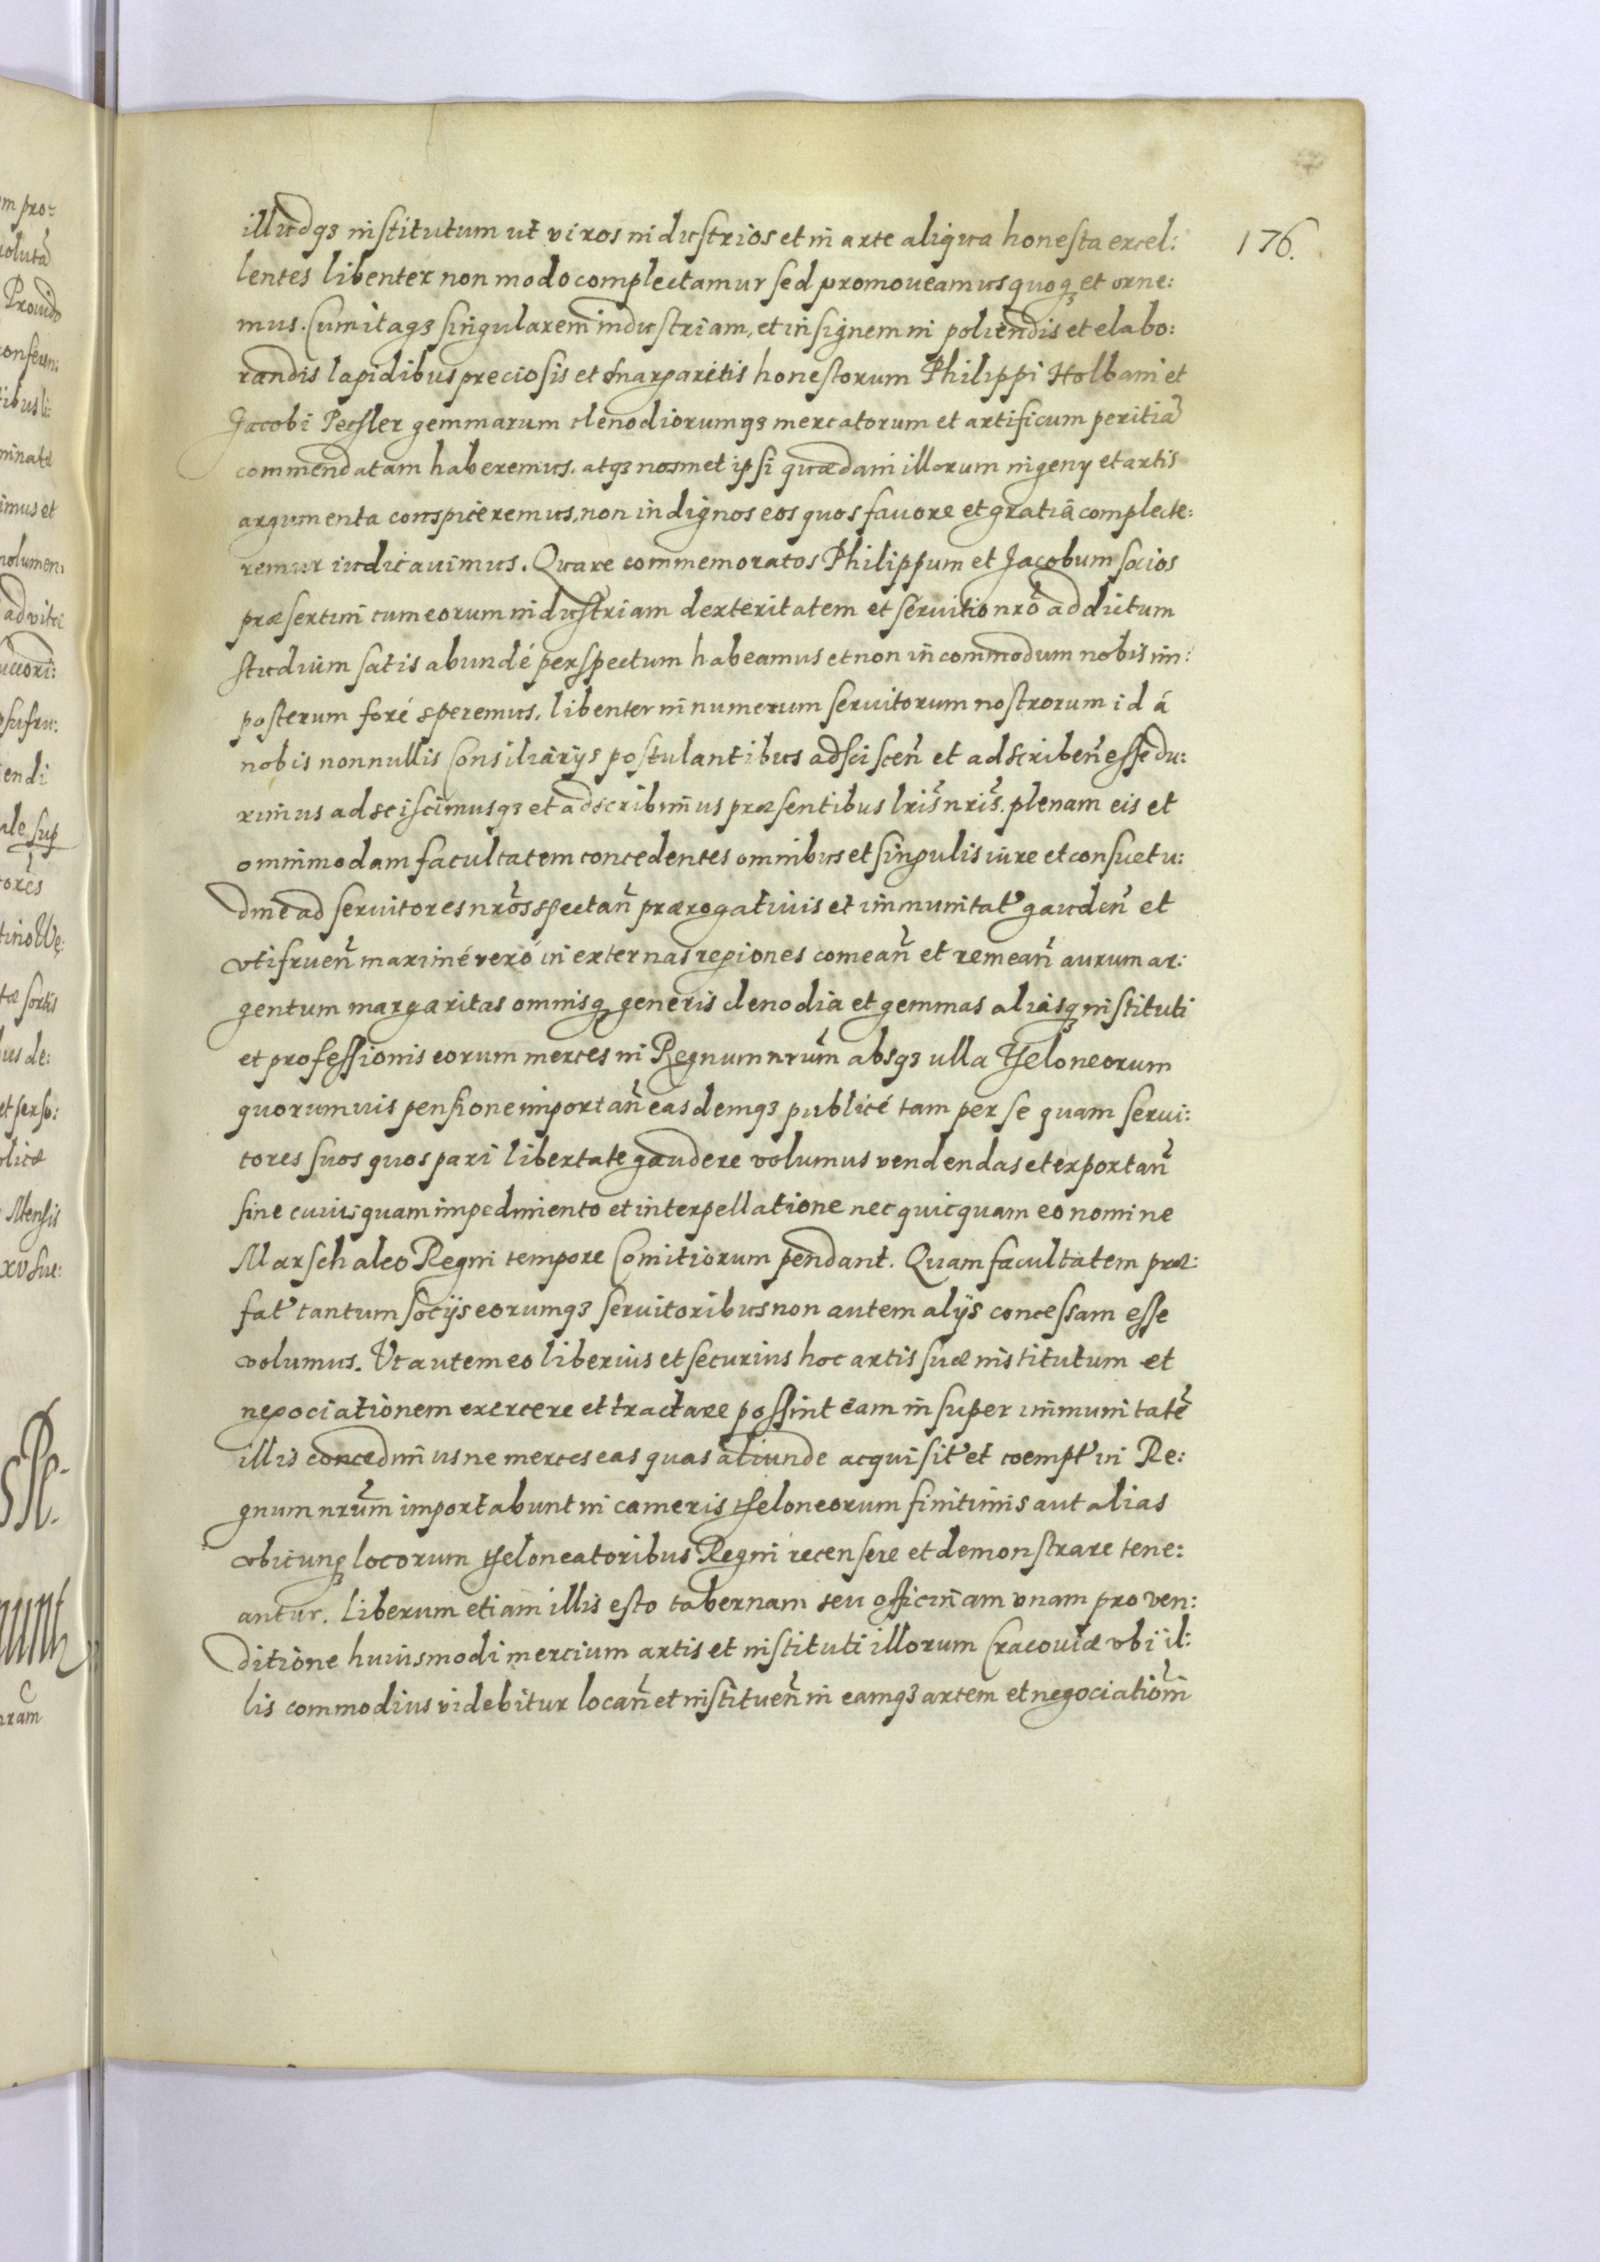 176.
illudqз institutum ut viros industrios et in arte aliqua honesta excel:
lentes libenter non modo complectamur sed promoveamus quoqз et orne:
mus. Cum itaqз singularem industriam, et insignem in poliendis et elabo:
randis lapidibus preciosis et margaritis honestorum Philippi Holbani et
Jacobi Pesler gemmarum clenodiorumqз mercatorum et artificum peritiã
commendatam haberemus. atqз nosmet ipsi quædam illorum ingenÿ et artis
argumenta conspiceremus, non indignos eos quos favore et gratiâ complecte:
remur iudicavimus. Quare commemoratos Philippum et Jacobum socios
præsertim cum eorum industriam dexteritatem et servitio nrõ addictum
studium satis abundé perspectum habeamus et non incommodum nobis im:
posterum foré speremus, libenter in numerum servitorum nostrorum id á
nobis nonnullis Consiliarÿs postulantibus adsciscen̄ et adscriben̄ esse du:
ximus adsciscimusqз et adscribimus præsentibus lris̃ nris̃. plenam eis et
omnimodam facultatem concedentes omnibus et singulis iure et consuetu:
dine ad servitores nrõs spectan̄ prærogativis et immunitat' gauden̄ et
utifruen̄ maximé veró in externas regiones comean̄ et remean̄ aurum ar:
gentum margaritas omnisqз generis clenodia et gemmas aliasqз instituti
et professionis eorum merces in Regnum nrũm absqз ulla theloneorum
quorumvis pensione importan̄ easdemqз publicé tam per se quam servi:
tores suos quos pari libertate gaudere volumus vendendas et exportan̄
sine cuiusquam impedimento et interpellatione nec quicquam eo nomine
Marschalco Regni tempore Comitiorum pendant. Quam facultatem præ:
fat' tantum socÿs eorumqз servitoribus non autem alÿs concessam esse
volumus. Ut autem eo liberius et securius hoc artis suæ institutum et
negociationem exercere et tractare possint eam insuper immunitatẽ
illis concedimus ne merces eas quas aliunde acquisit' et coempt' in Re:
gnum nrũm importabunt in cameris theloneorum finitimis aut alias
ubicunqз locorum theloneatoribus Regni recensere et demonstrare tene:
antur. Liberum etiam illis esto tabernam seu officinam unam pro ven:
ditione huiusmodi mercium artis et instituti illorum Cracoviæ ubi il:
lis commodius videbitur locan̄ et instituen̄ in eamqз artem et negociatiom̃